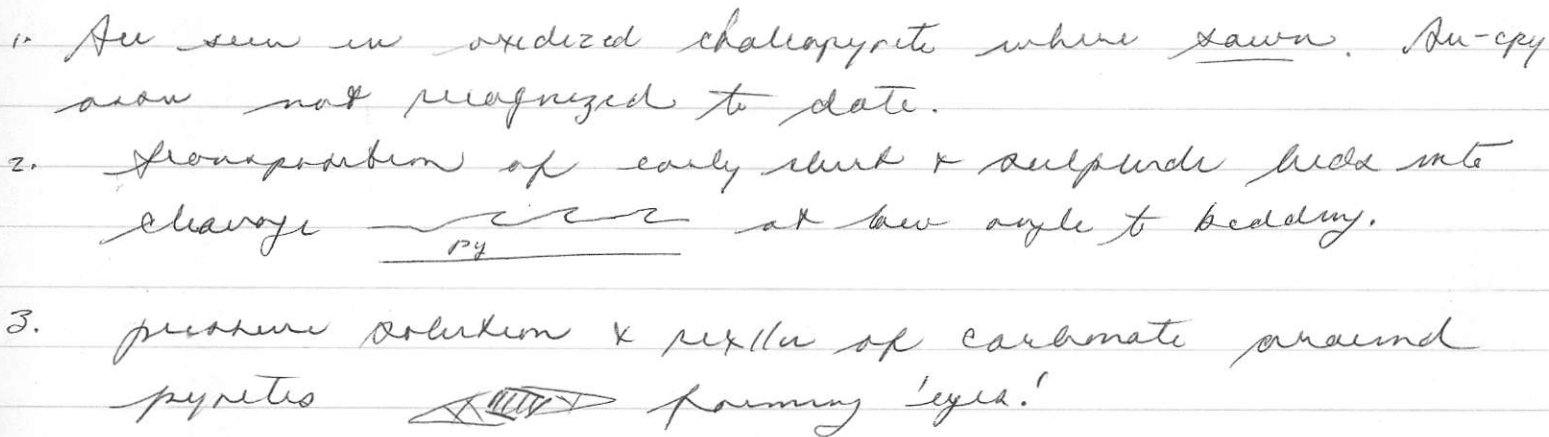 1. Au seen in oxidized chalcopyrite where sawn. Au-cpy
assn not recognized to date.
2. transposition of early chert & sulphide beds into
cleavage py at low angle to bedding.
3. pressure solution & rexlln of carbonate around
pyrites forming 'eyes'